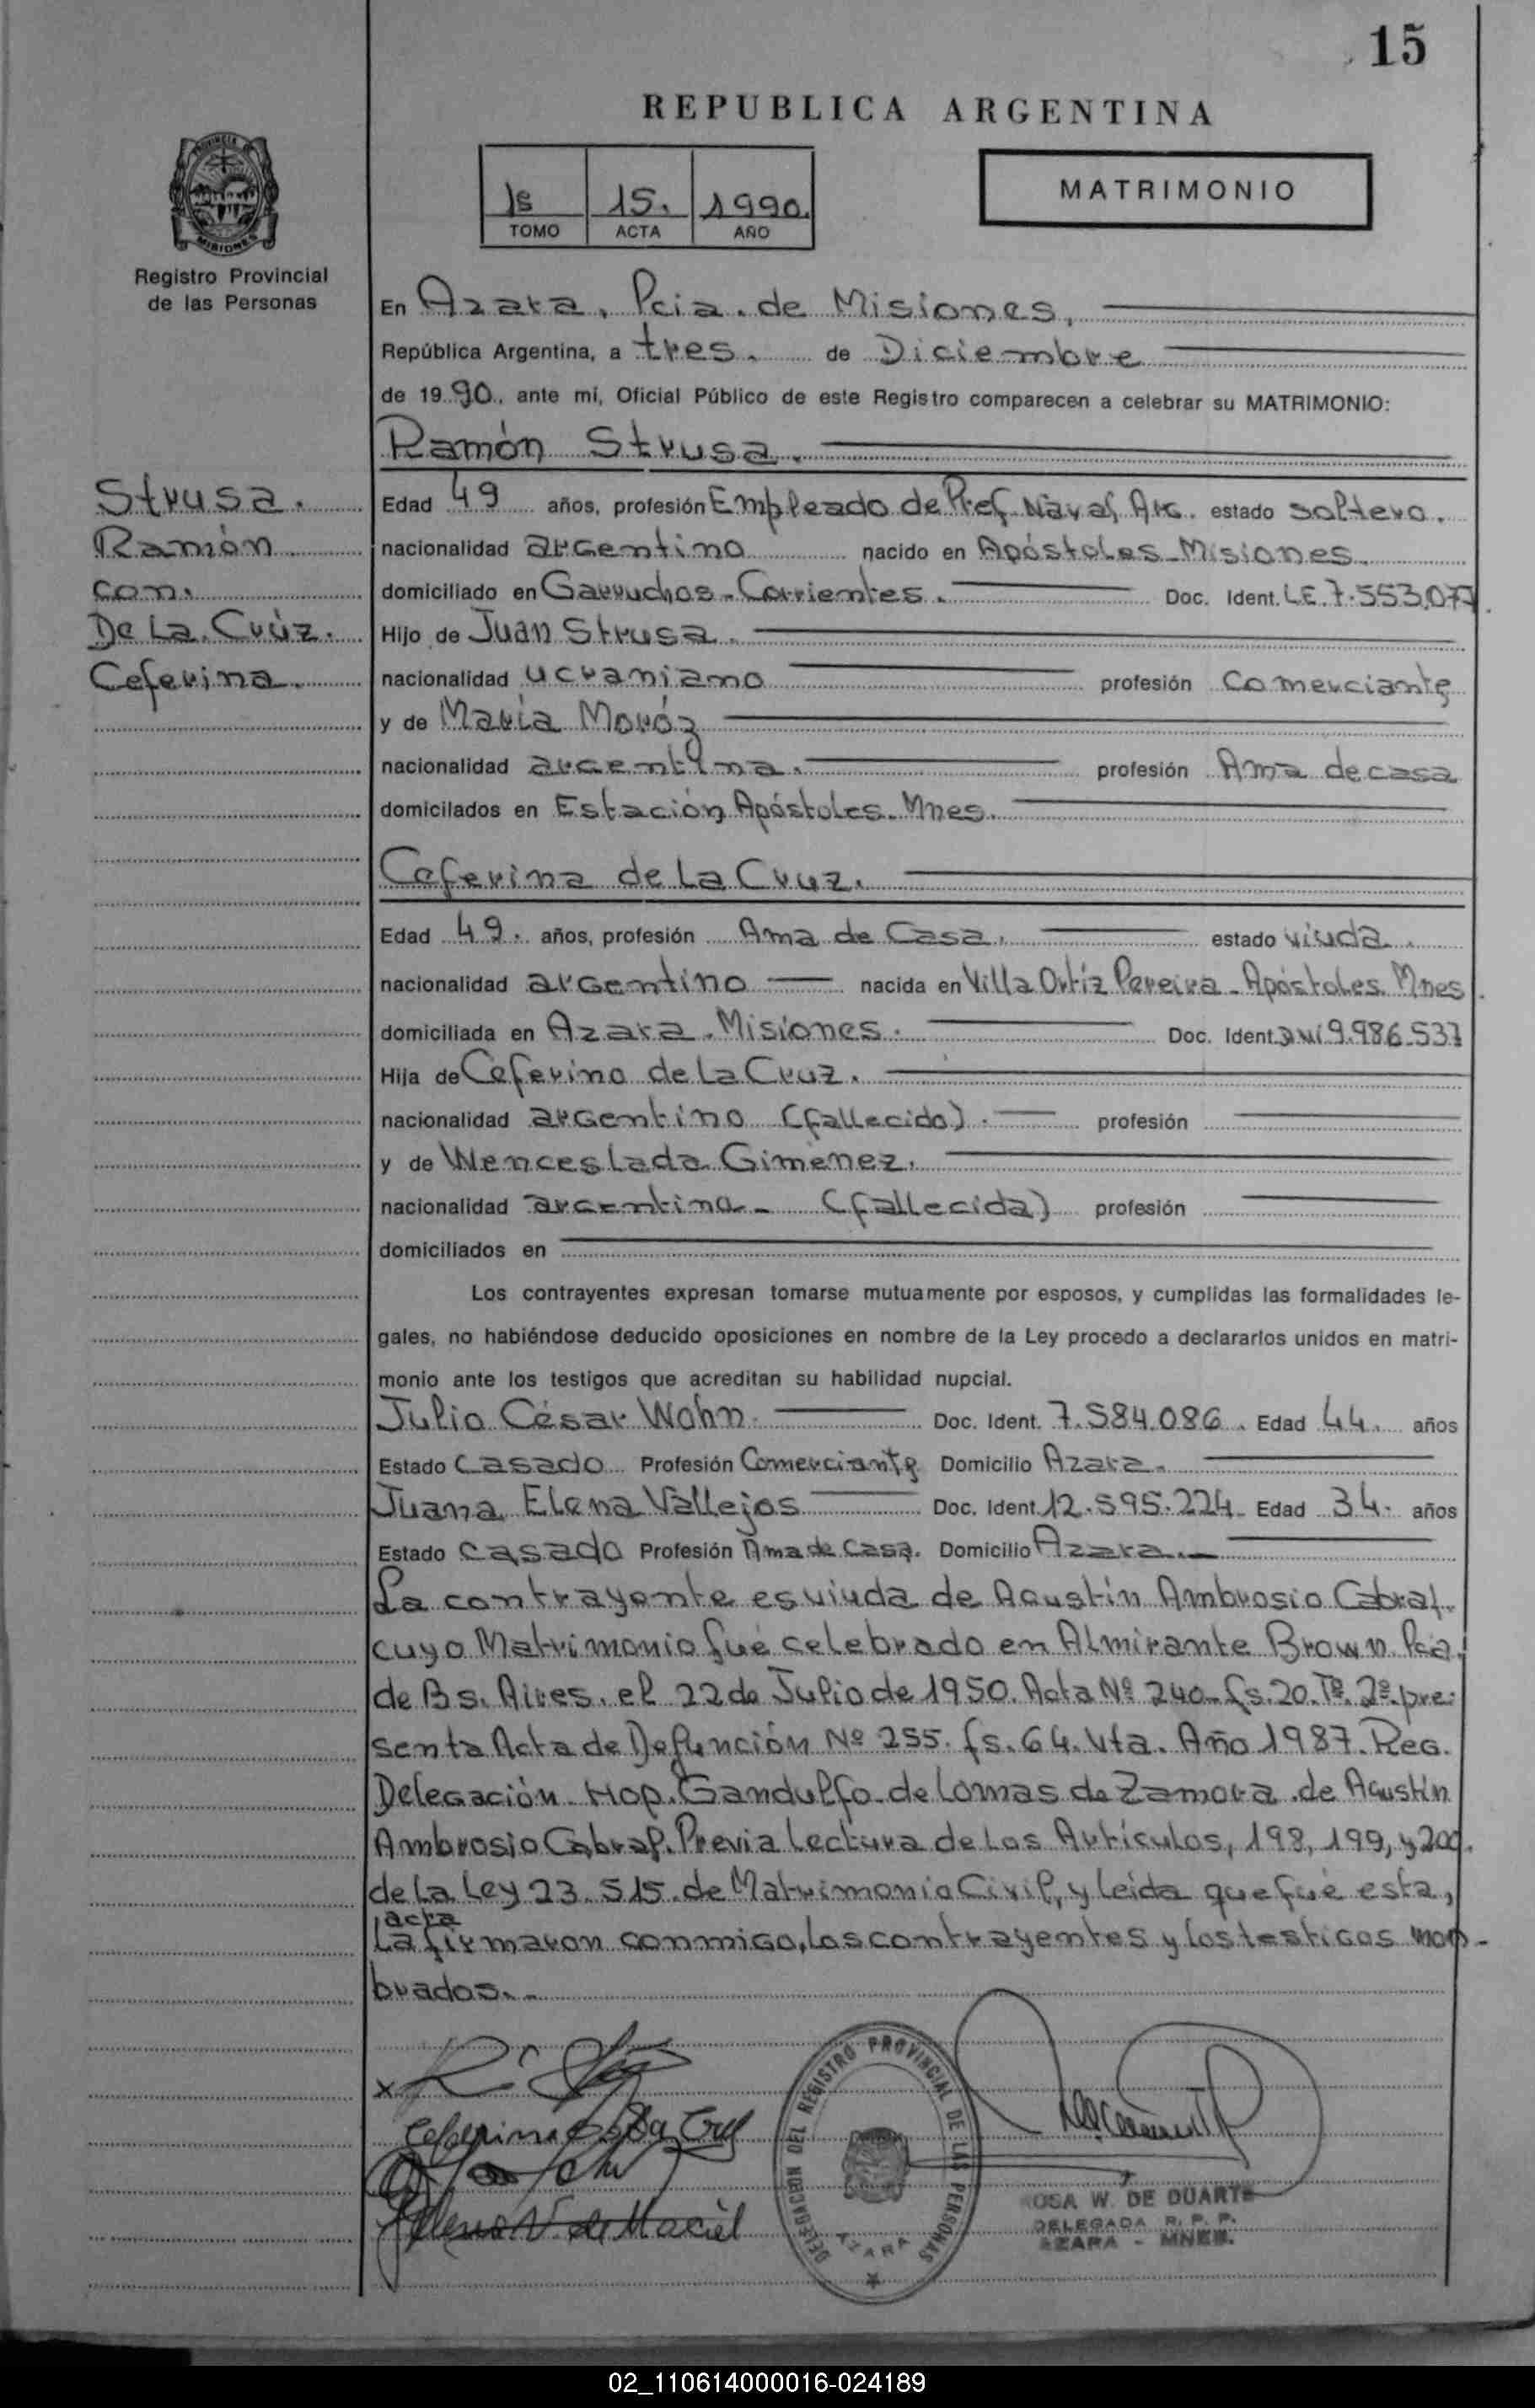 15
REPUBLICA ARGENTINA
MATRIMONIO
1º 15. 1990.
TOMO ACTA AÑO
PROVINCIA DE MISIONES
Registro Provincial
de las Personas
En Azara, Pcia. de Misiones,
República Argentina, a tres. de Diciembre
de 1990, ante mí, Oficial Público de este Registro comparecen a celebrar su MATRIMONIO:
Ramón Strusa.
Strusa.
Ramón
con.
De La Crúz.
Ceferina.
Edad 49 años, profesión Empleado de Pref. Naval Arg. estado soltero.
nacionalidad argentino nacido en Apóstoles Misiones
domiciliado en Garruchos - Corrientes. Doc. Ident. LE.7.553.077
Hijo de Juan Strusa.
nacionalidad ucraniano profesión Comerciante
y de María Moróz
nacionalidad argentina. profesión Ama de casa
domicilados en Estación Apóstoles. Mnes.
Ceferina de La Cruz.
Edad 49. años, profesión Ama de Casa. estado viuda.
nacionalidad argentino nacida en Villa Ortíz Pereira - Apóstoles Mnes
domiciliada en Azara. Misiones. Doc. Ident. DNI 9.986.537
Hija de Ceferino de La Cruz.
nacionalidad argentino (fallecido). profesión
y de Wenceslada Gimenez.
nacionalidad argentina - (fallecida) profesión
domiciliados en
Los contrayentes expresan tomarse mutuamente por esposos, y cumplidas las formalidades le-
gales, no habiéndose deducido oposiciones en nombre de la Ley procedo a declararlos unidos en matri-
monio ante los testigos que acreditan su habilidad nupcial.
Julio César Wohn. Doc. Ident. 7.584.086. Edad 44. años
Estado Casado Profesión Comerciante Domicilio Azara.
Juana Elena Vallejos Doc. Ident. 12.595.224 Edad 34. años
Estado Casado Profesión Ama de Casa. Domicilio Azara.
La contrayente es viuda de Agustín Ambrosio Cabral.
cuyo Matrimonio fué celebrado en Almirante Brown Pcia.
de Bs. Aires. el 22 de Julio de 1950. Acta Nº 240. fs. 20. Tº. 2º. pre-
senta Acta de Defunción Nº 255. fs. 64. Vta. Año 1987. Reg.
Delegación Hop. Gandulfo de Lomas de Zamora. de Agustín
Ambrosio Cabral. Previa Lectura de Los Artículos, 198, 199, y 200.
de La Ley 23.515. de Matrimonio Civil, y leída que fué esta,
acta
La firmaron conmigo, los contrayentes y los testigos nom-
brados.
x
Ceferina de La Cruz
Elena V. de Maciel
DELEGACION DEL REGISTRO PROVINCIAL DE LAS PERSONAS
AZARA
ROSA W. DE DUARTE
DELEGADA R. P. P.
AZARA - MNES.
02_110614000016-024189